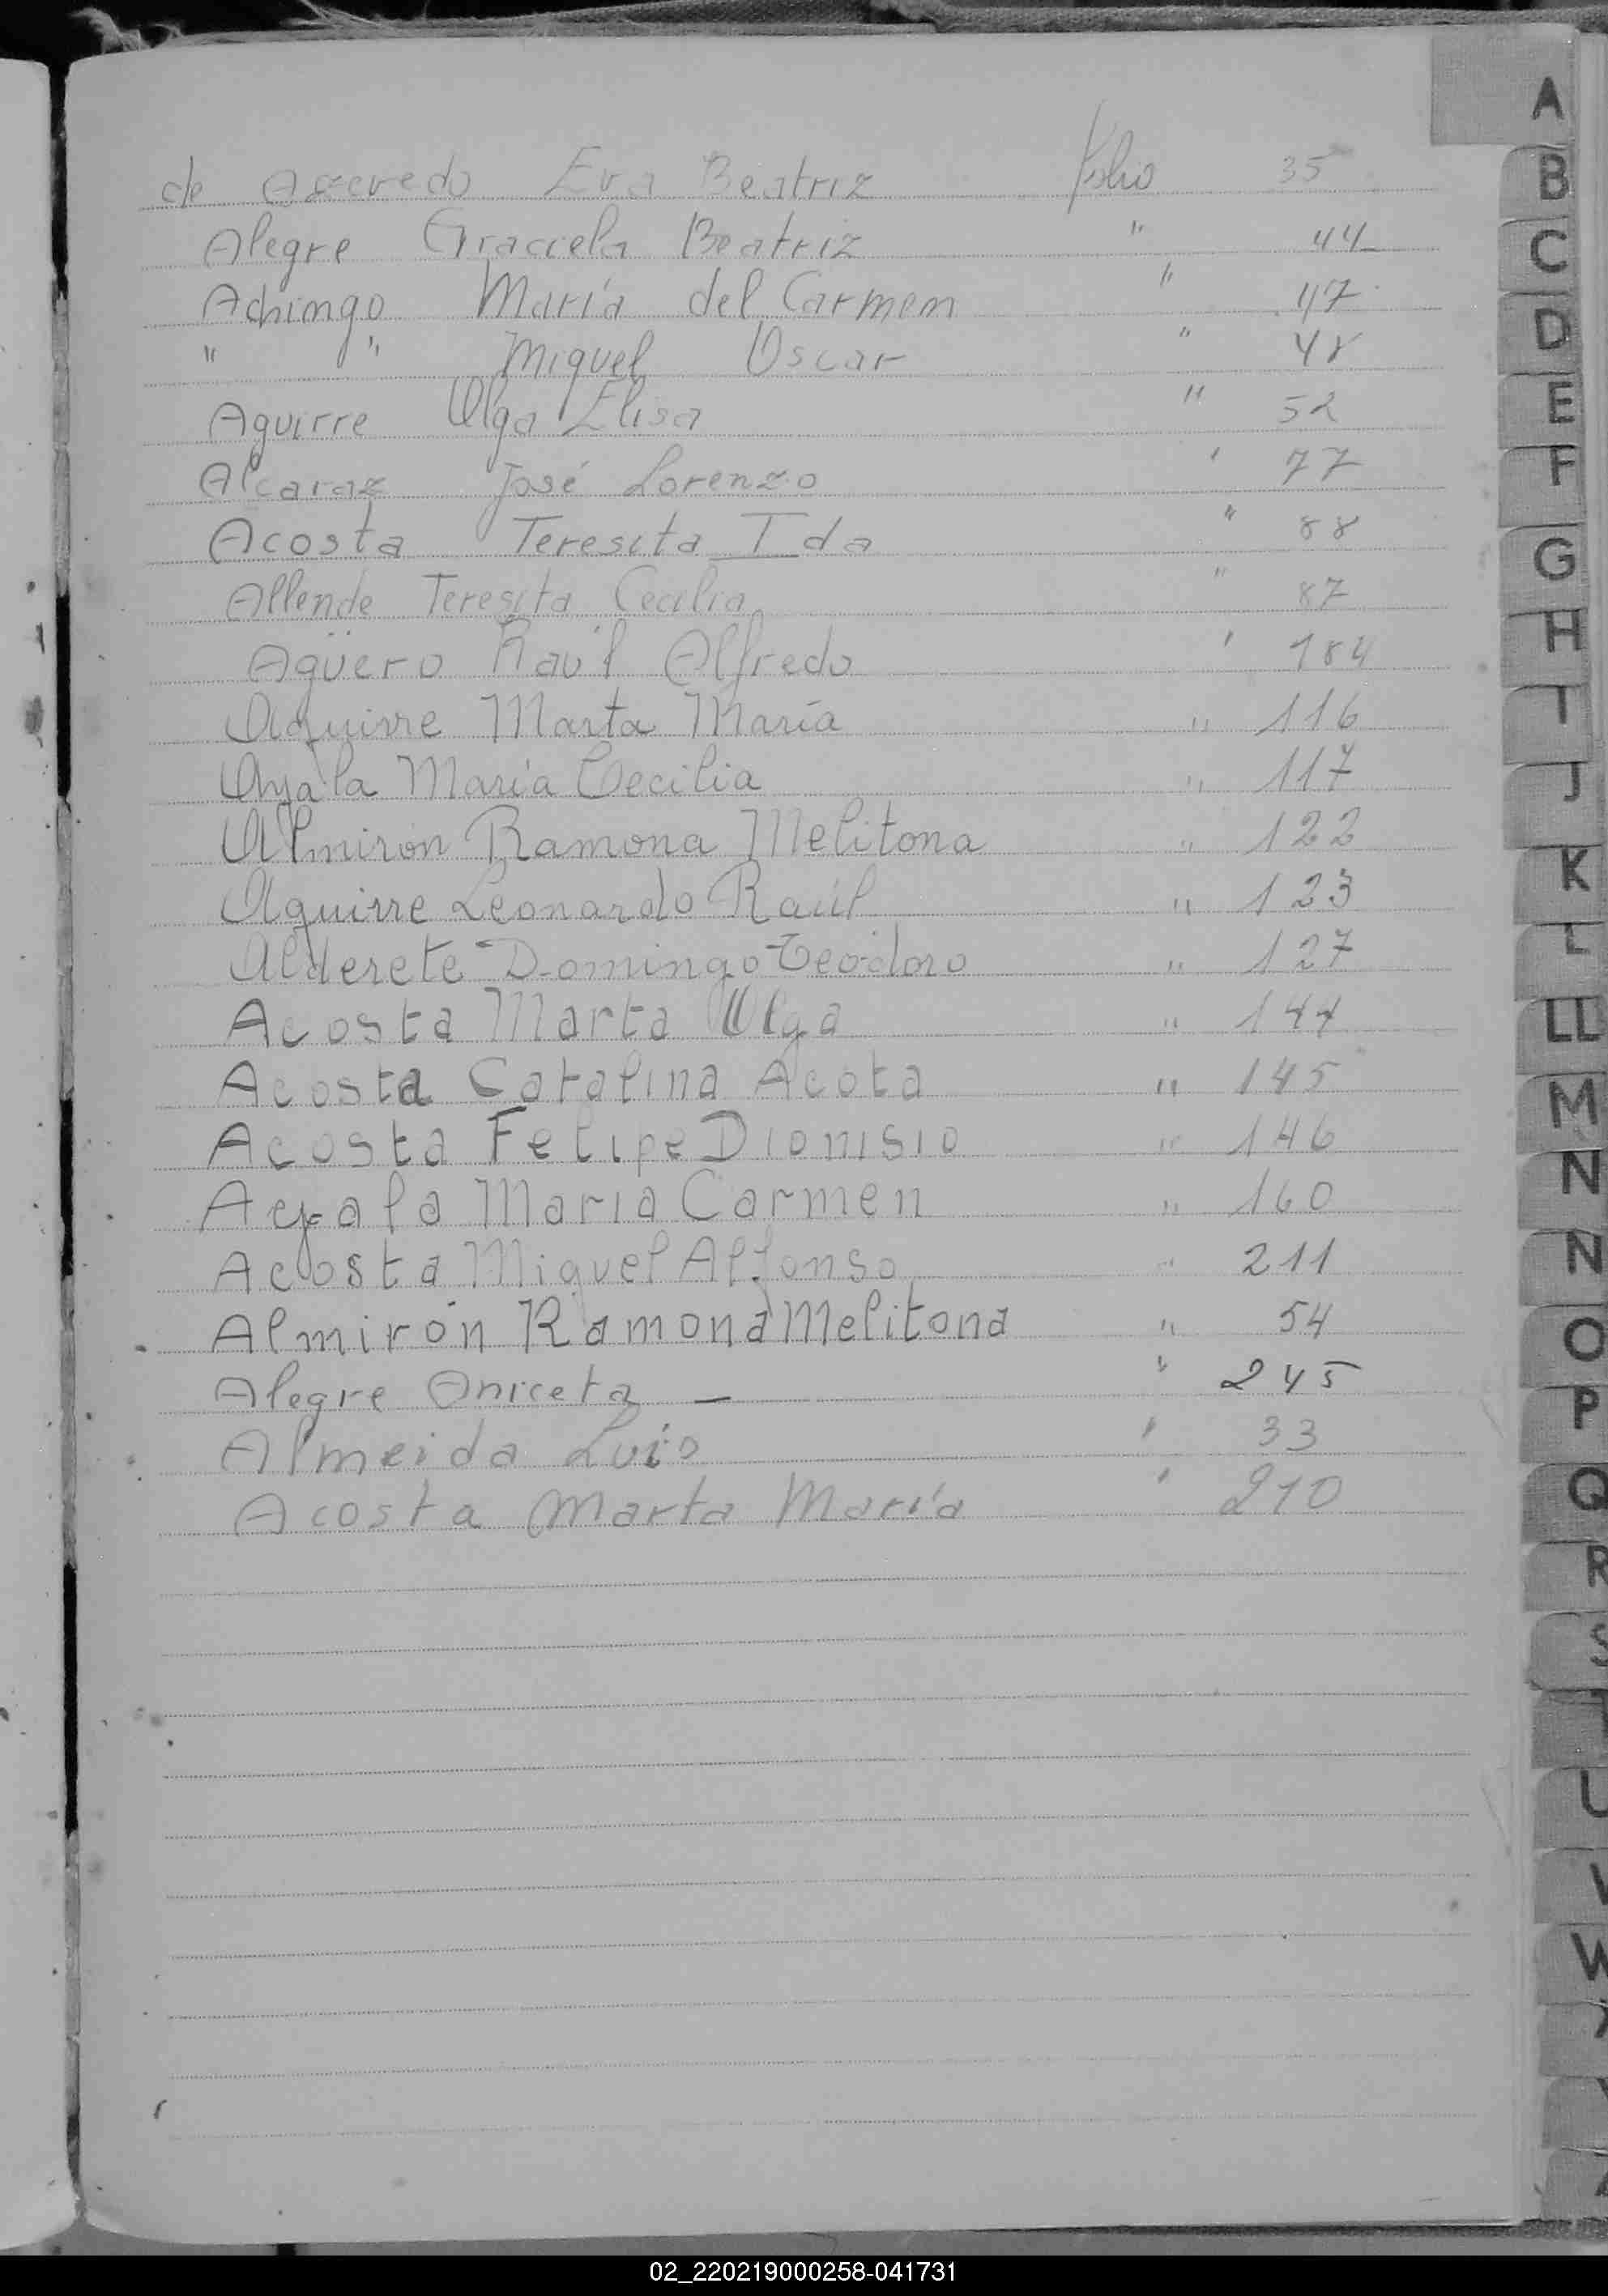 de Acevedo Eva Beatriz folio 35
Alegre Graciela Beatriz " 44
Achingo María del Carmen " 47
" " Miguel Oscar " 48
Aguirre Olga Elisa " 52
Alcaraz José Lorenzo ' 77
Acosta Teresita Ida " 88
Allende Teresita Cecilia " 87
Agüero Raúl Alfredo ' 184
Aguirre Marta María " 116
Ayala María Cecilia " 117
Almirón Ramona Melitona " 122
Aguirre Leonardo Raúl " 123
Alderete Domingo Teodoro " 127
Acosta Marta Olga " 144
Acosta Catalina Acota " 145
Acosta Felipe Dionisio " 146
Ayala Maria Carmen " 160
Acosta Miguel Alfonso " 211
Almirón Ramona Melitona " 54
Alegre Aniceta — " 245
Almeida Luis ' 33
Acosta Marta María ' 210
A
B
C
D
E
F
G
H
I
J
K
L
LL
M
N
N
O
P
Q
R
S
T
U
V
W
02_220219000258-041731